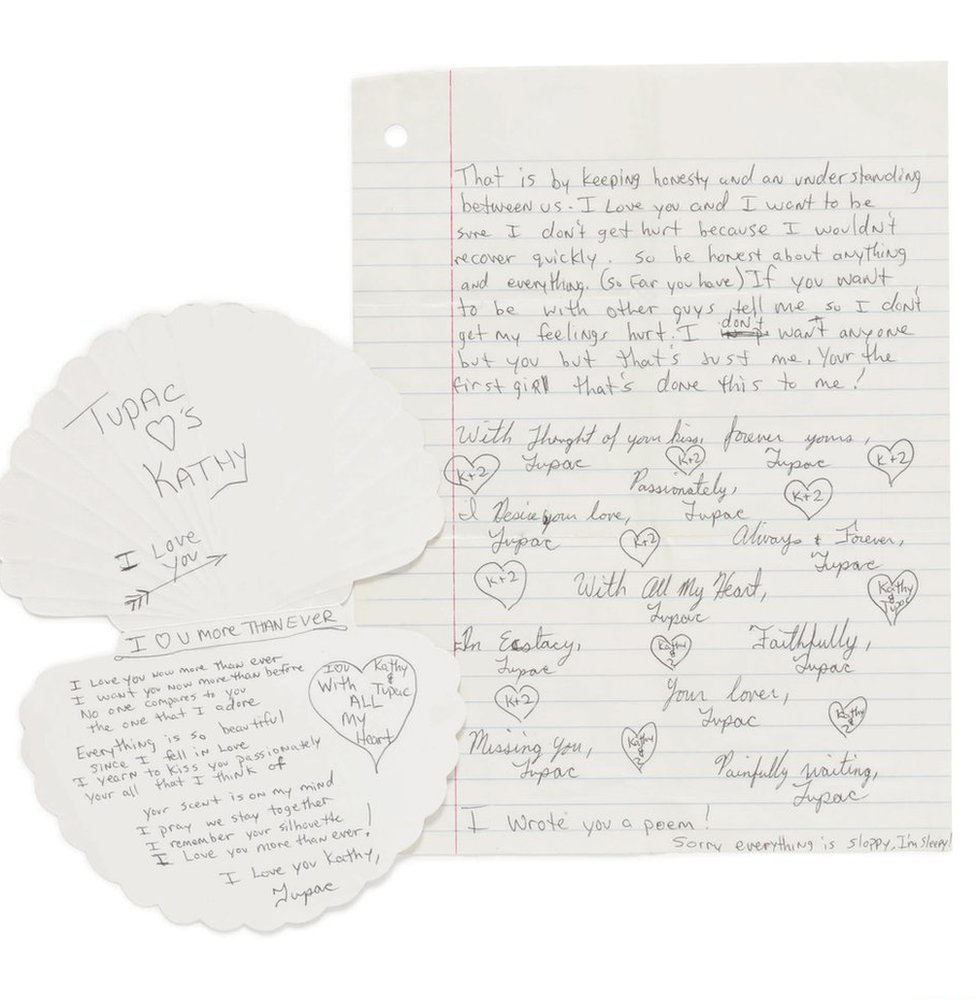 TUPAC
♡'S
KATHY
I LOVE
you
I ♡ U MORE THAN EVER
I love you now more than ever
I want you now more than before
No one compares to you
the one that I adore
Everything is so beautiful
since I fell in Love
I yearn to kiss you passionately
your all that I think of
your scent is on my mind
I pray we stay together
I remember your silhouette
I Love you more than ever!
I love you Kathy,
Tupac
I ♡ U
With
ALL
My
Heart
Kathy
&
Tupac
That is by keeping honesty and an understanding
between us. I Love you and I want to be
sure I don't get hurt because I wouldn't
recover quickly. so be honest about anything
and everything. (so far you have) If you want
to be with other guys tell me so I don't
get my feelings hurt. I don't want anyone
but you but that's Just me. Your the
first girl that's done this to me!
With Thought of your kiss, forever yours,
K+2 Tupac K+2 Tupac K+2
Passionately, K+2
I Desire your love, Tupac
Tupac K+2 Always & Forever,
Tupac
K+2 With All My Heart, Kathy
Tupac & Tupac
In Ecstacy, Kathy & 2 Faithfully,
Tupac Tupac
K+2 Your lover, Kathy & 2
Tupac
Missing You, Kathy & 2
Tupac Painfully waiting,
Tupac
I Wrote you a poem!
Sorry everything is sloppy, I'm sleepy!